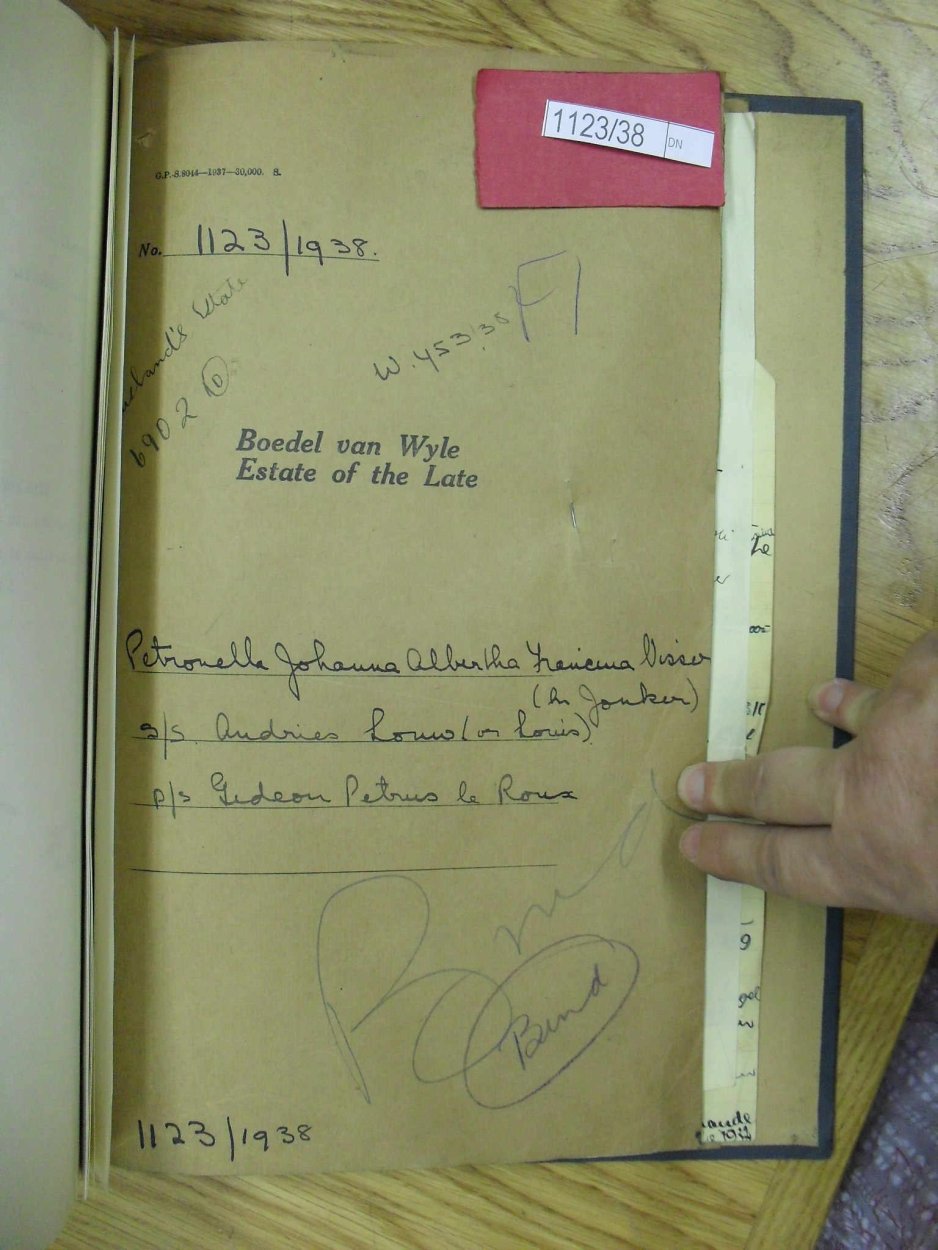 1123/38 DN
G.P.-S.8044—1937—30,000. S.
No. 1123/1938.
F1
W. 453/38
usband's State
6902 D
Boedel van Wyle
Estate of the Late
Petronella Johanna Albertha Francina Visser
(bn Jonker)
s/s. Andries Louw (or Louis)
p/s Gedeon Petrus le Roux
Bond
Bond
1123/1938